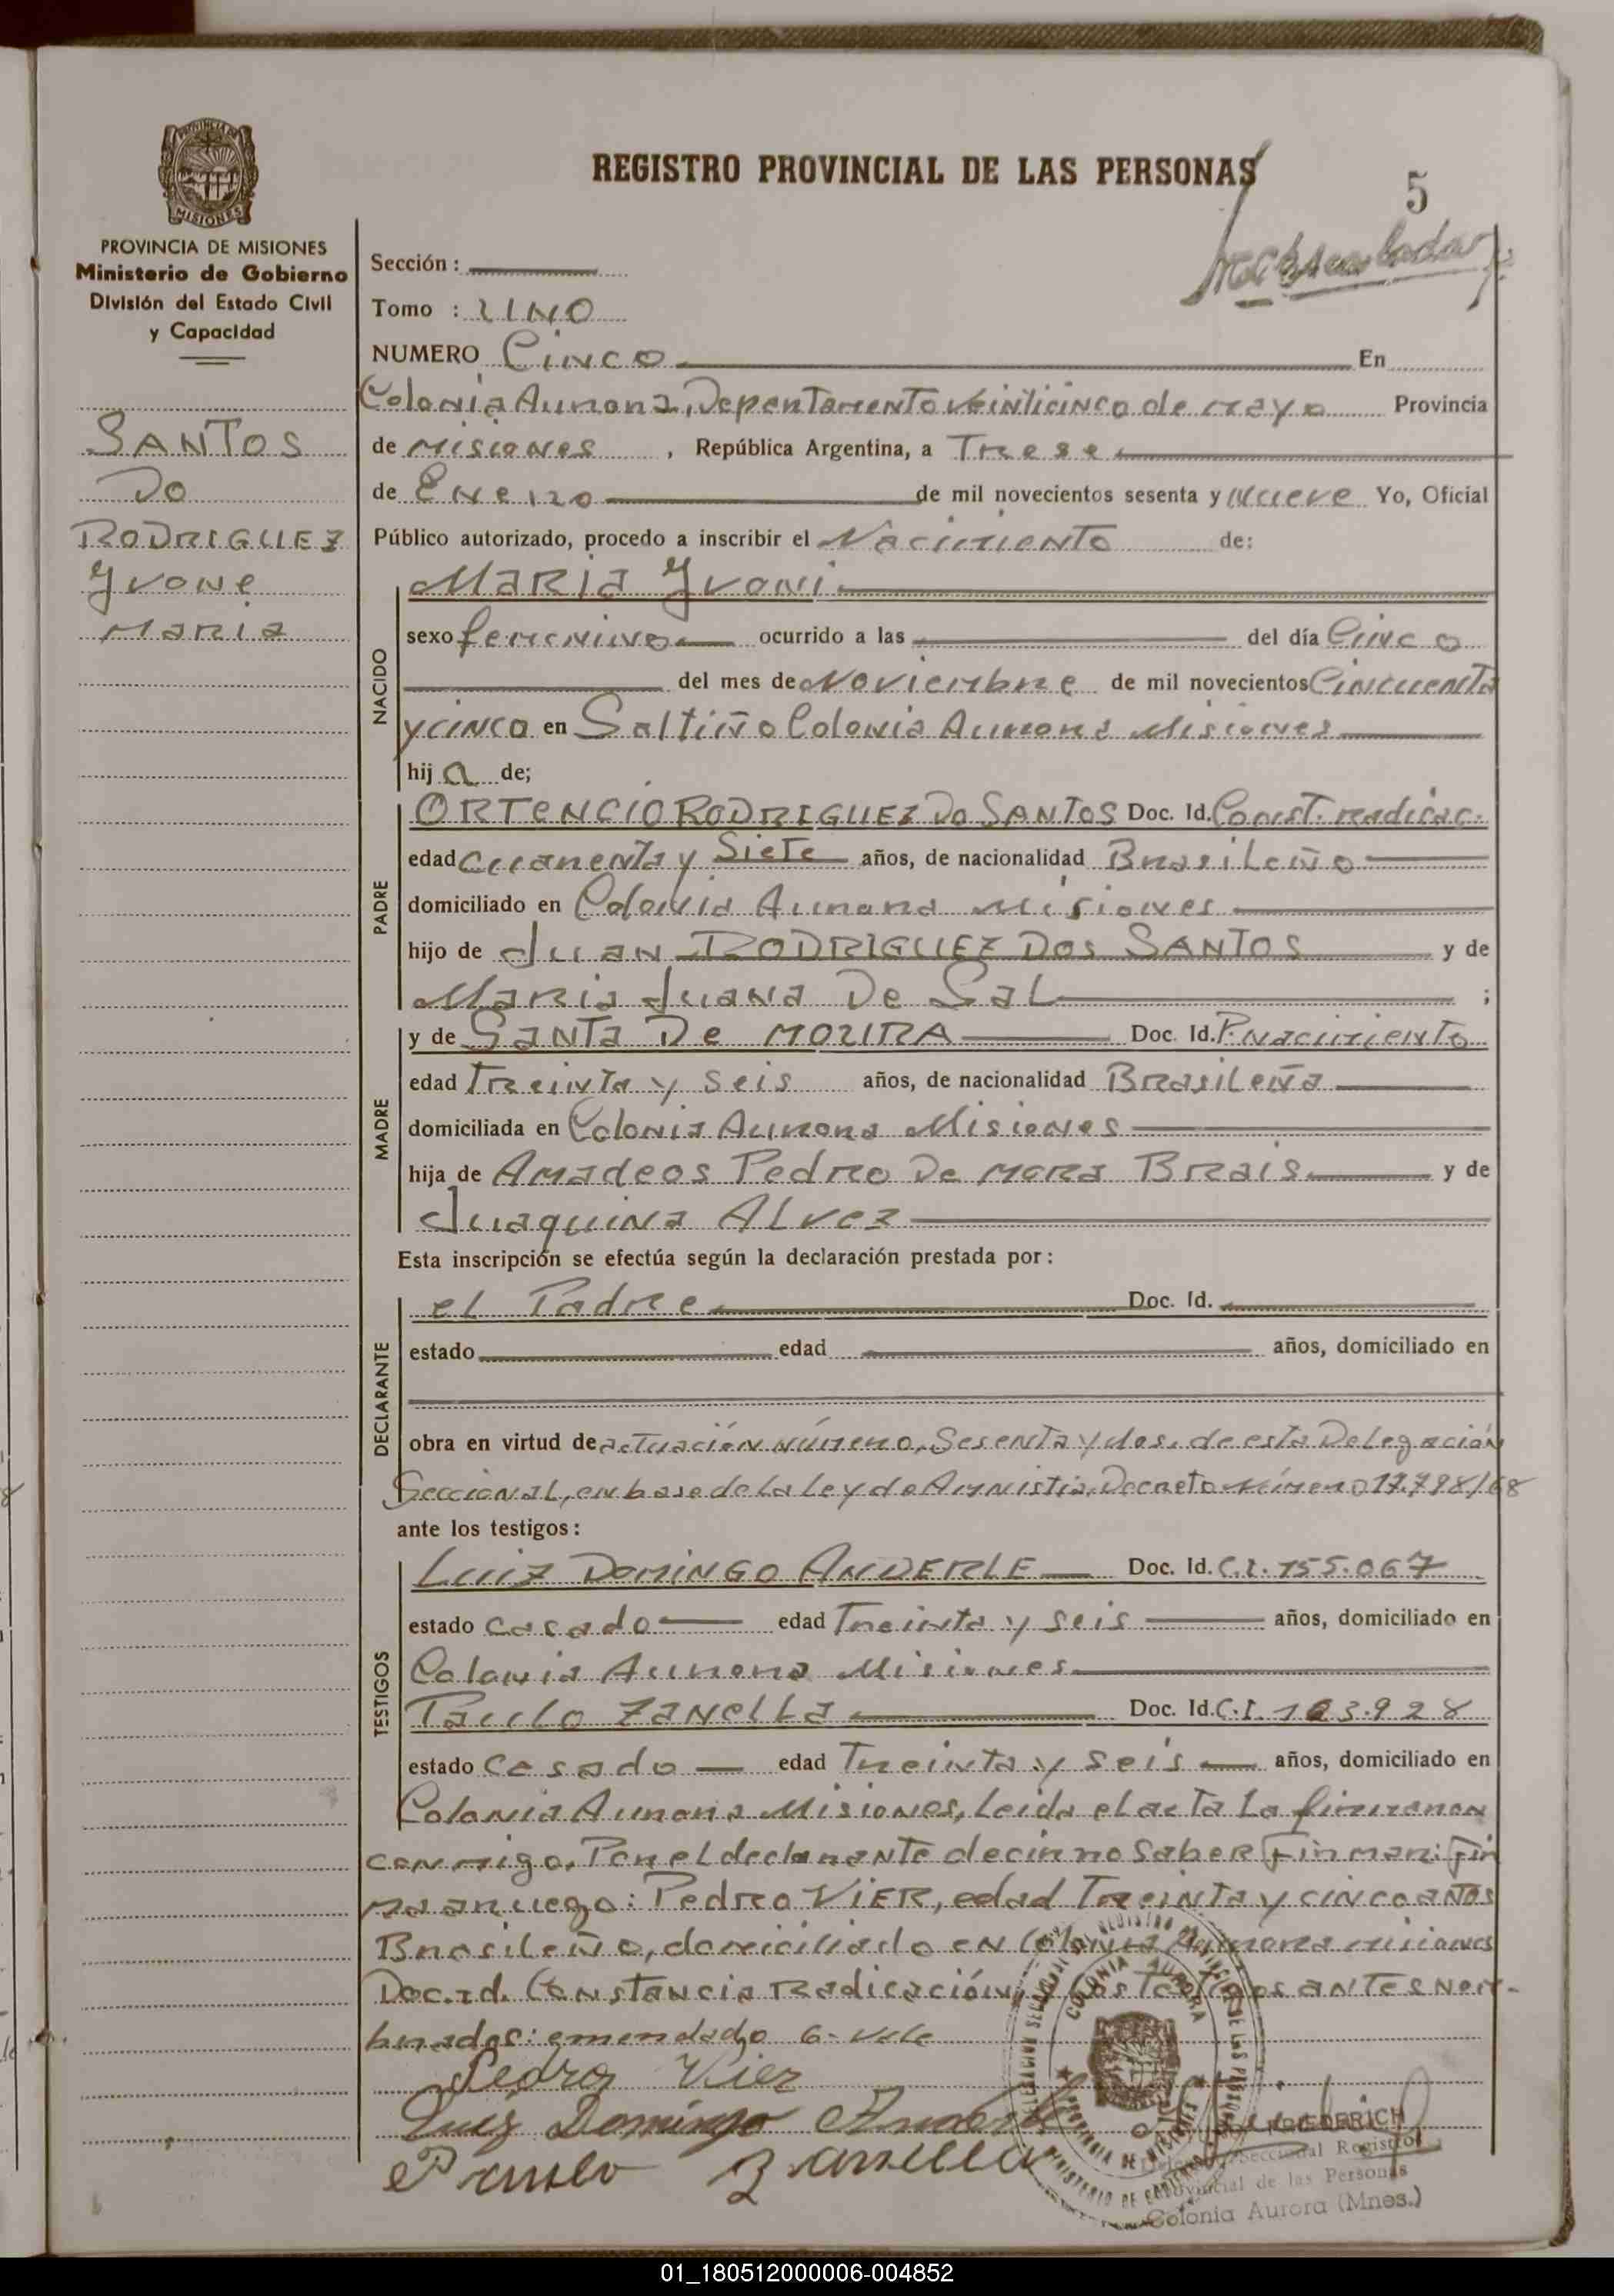 REGISTRO PROVINCIAL DE LAS PERSONAS
5
PROVINCIA DE MISIONES
Ministerio de Gobierno
División del Estado Civil
y Capacidad
SANTOS
DO
RODRIGUEZ
Yvone
Maria
Sección :
Tomo : UNO
NUMERO Cinco En
Colonia Aurora, Departamento Veinticinco de mayo Provincia
de Misiones , República Argentina, a Trese
de Enero de mil novecientos sesenta y nueve Yo, Oficial
Público autorizado, procedo a inscribir el Nacimiento de:
NACIDO
Maria Yvoni
sexo femenino ocurrido a las del día Cinco
del mes de Noviembre de mil novecientos Cincuenta
y cinco en Saltiño Colonia Aurora Misiones
hij a de;
PADRE
ORTENCIO RODRIGUEZ DO SANTOS Doc. Id. Const. radicac.
edad cuarenta y Siete años, de nacionalidad Brasileño
domiciliado en Colonia Aurora Misiones
hijo de Juan RODRIGUEZ DOS SANTOS y de
Maria Juana De Sal ;
MADRE
y de SANTA De MOURA Doc. Id. P. nacimiento
edad Treinta y seis años, de nacionalidad Brasileña
domiciliada en Colonia Aurora Misiones
hija de Amadeos Pedro De Mora Brais y de
Juaquina Alvez
Esta inscripción se efectúa según la declaración prestada por :
DECLARANTE
el Padre Doc. Id.
estado edad años, domiciliado en
obra en virtud de actuación número, Sesenta y dos, de esta Delegación
Seccional, en base de la Ley de Amnistia, Decreto número 17.798/68
ante los testigos :
TESTIGOS
Luiz DOMINGO ANDERLE Doc. Id. C.I. 155.067
estado casado edad Treinta y seis años, domiciliado en
Colonia Aurora Misiones
Paulo ZANELLA Doc. Id. C.I. 163.928
estado Casado edad Treinta y seis años, domiciliado en
Colonia Aurora Misiones, Leida el acta La firmaron
conmigo, Por el declarante decir no saber Firmar: Fir
ma a ruego: Pedro VIER, edad Treinta y cinco años
Brasileño, domiciliado en Colonia Aurora misiones
Doc. id. Constancia Radicación, y los Testigos antes nom-
brados: emendado 6- vale
Pedro Vier
Luiz Domingo Anderle
Paulo Zanella
COLONIA AURORA
PROVINCIA DE MISIONES
FRIEDERICH
Seccional Registro
Provincial de las Personas
Colonia Aurora (Mnes.)
01_180512000006-004852